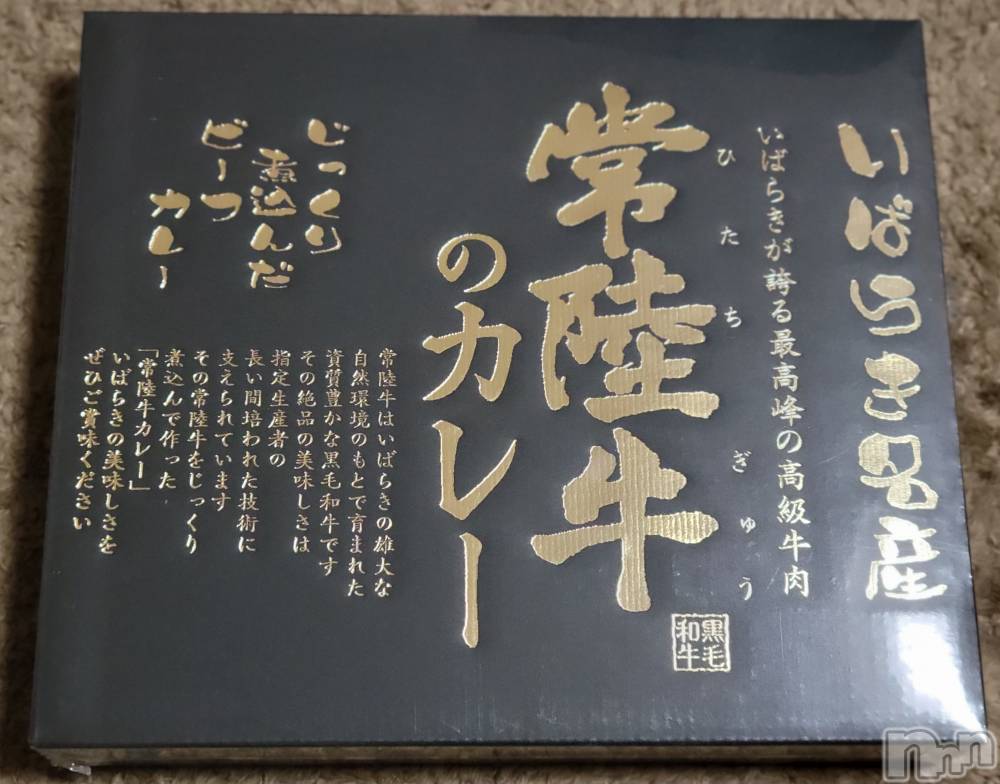 いばらき名産
いばらきが誇る最高峰の高級牛肉
ひたちぎゅう
常陸牛
のカレー
黒毛
和牛
じっくり
煮込んだ
ビーフ
カレー
常陸牛はいばらきの雄大な
自然環境のもとで育まれた
資質豊かな黒毛和牛です
その絶品の美味しさは
指定生産者の
長い間培われた技術に
支えられています
その常陸牛をじっくり
煮込んで作った
「常陸牛カレー」
いばらきの美味しさを
ぜひご賞味ください